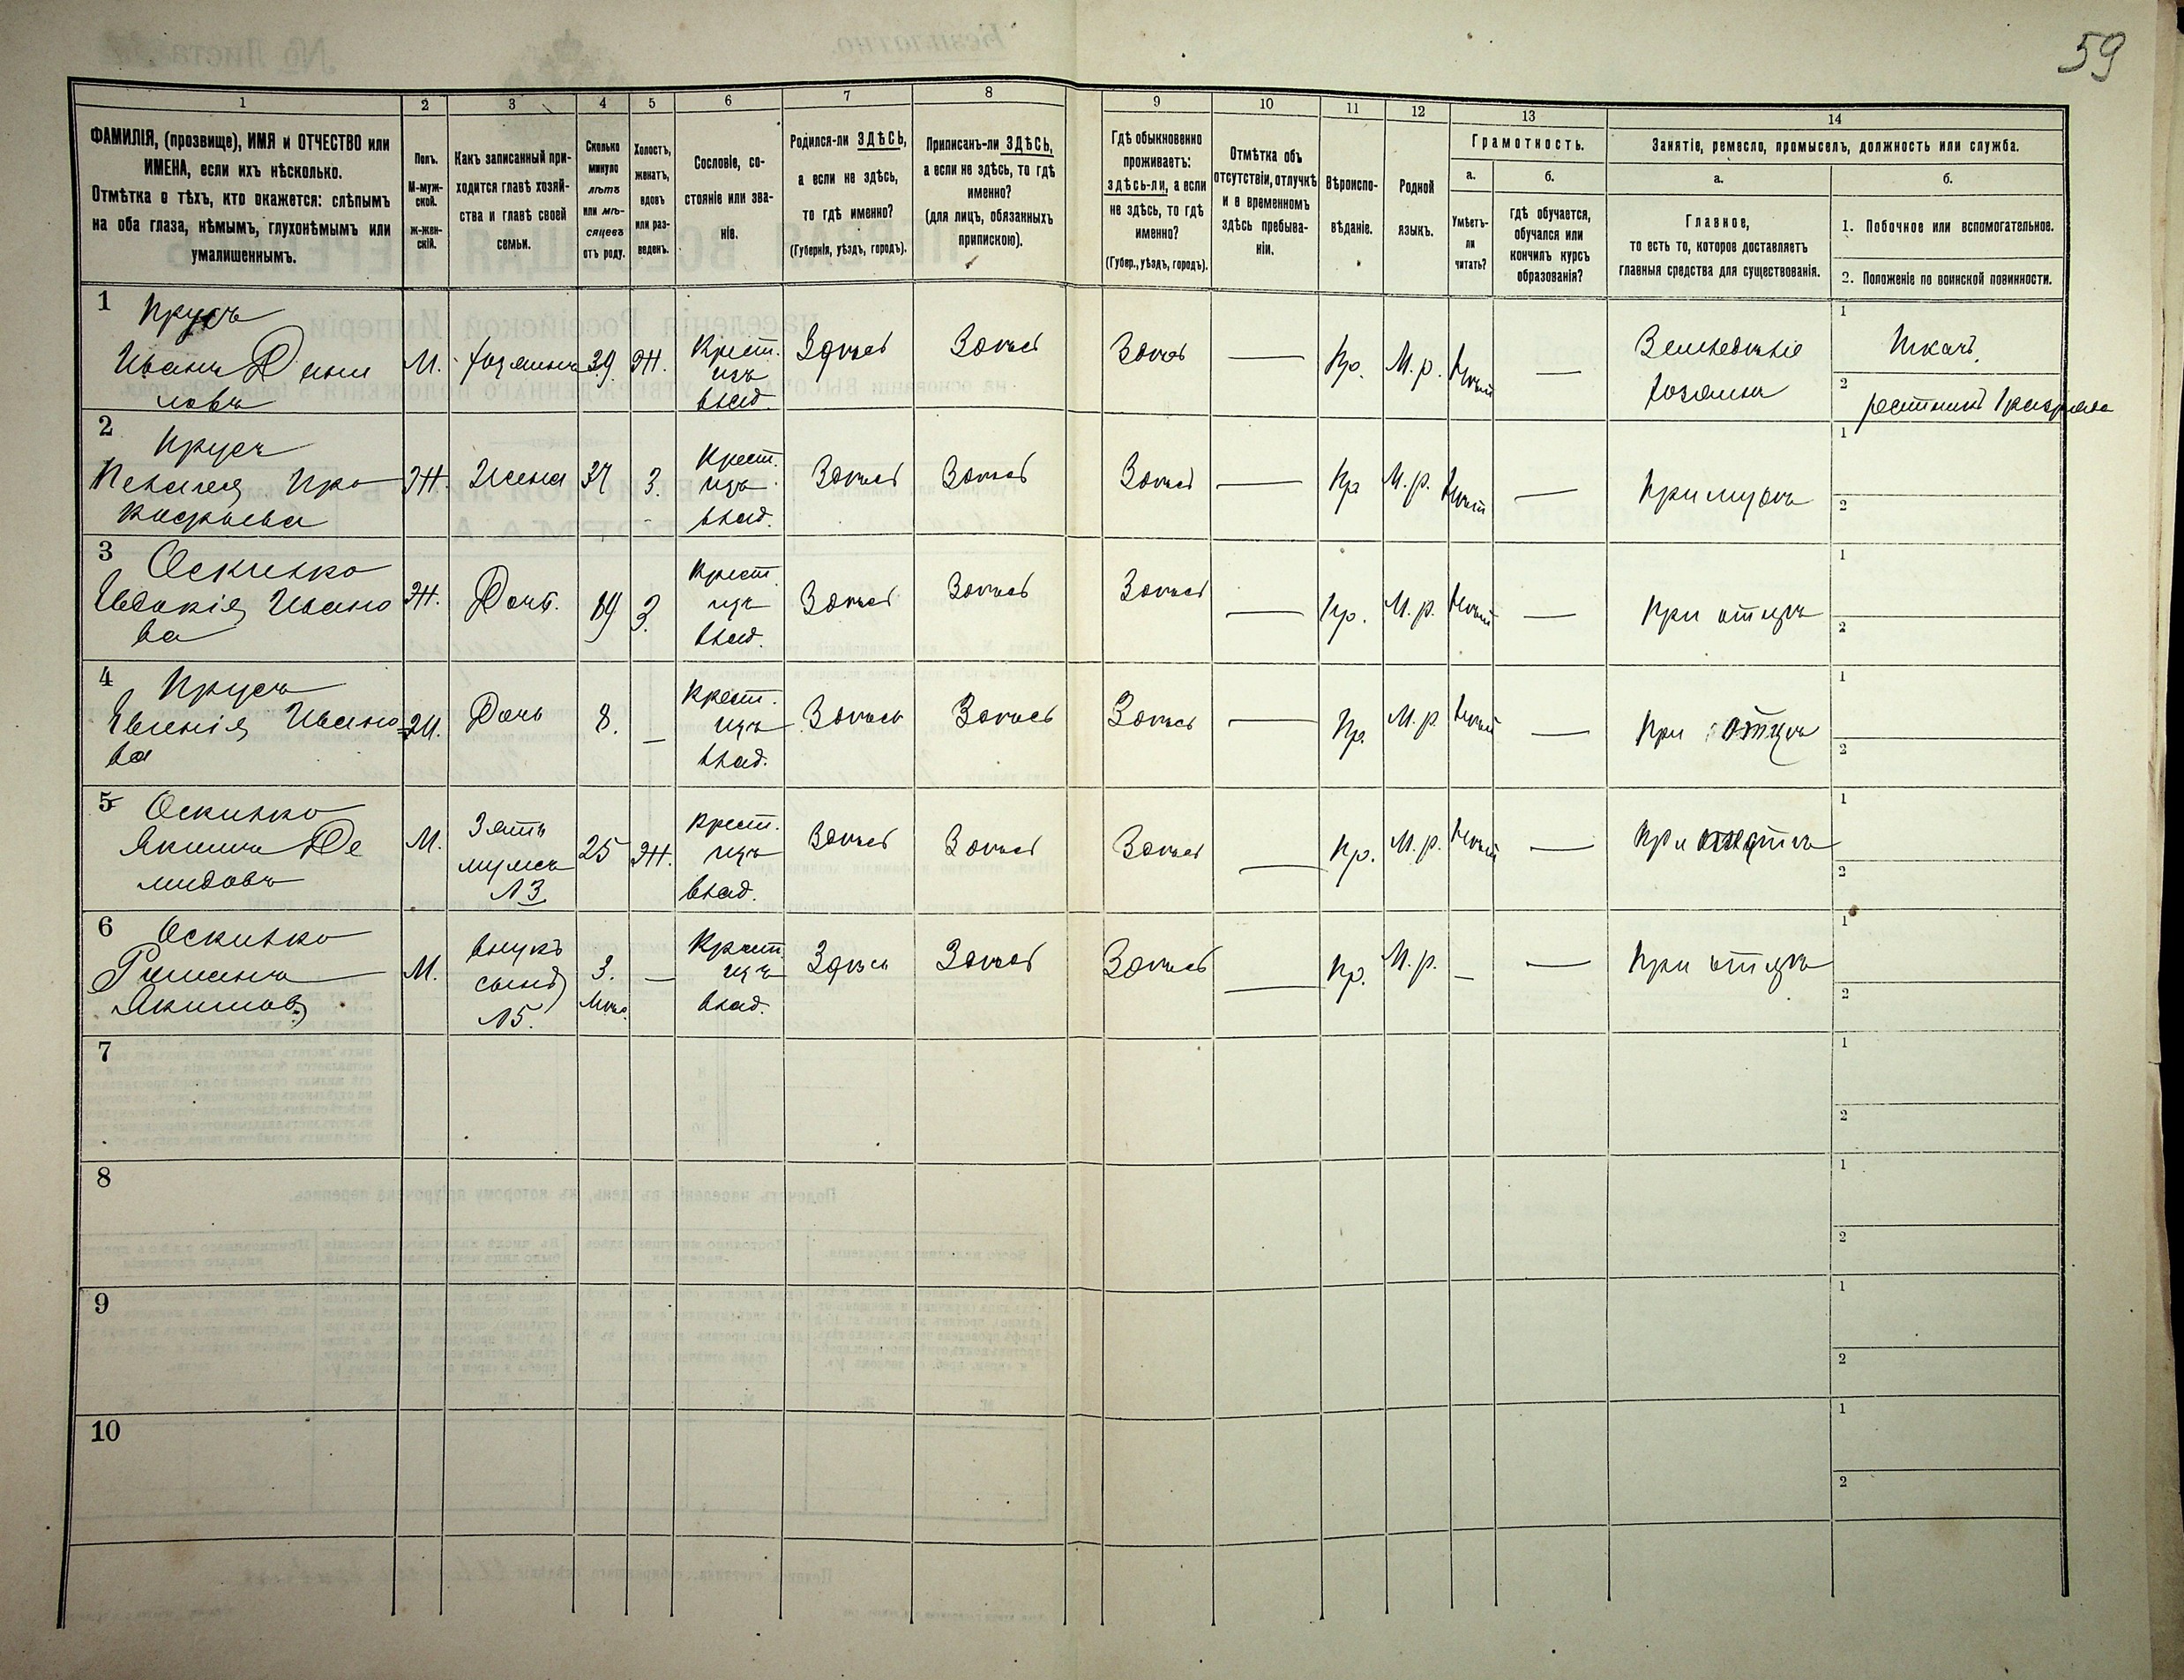 59
1
2
3
4
5
6
7
8
9
10
11
12
13
14
ФАМИЛІЯ, (прозвище), ИМЯ и ОТЧЕСТВО или
ИМЕНА, если ихъ нѣсколько.
Отмѣтка о тѣхъ, кто окажется: слѣпымъ
на оба глаза, нѣмымъ, глухонѣмымъ или
умалишеннымъ.
Полъ.
М-муж-
ской.
ж-жен-
скій.
Какъ записанный при-
ходится главѣ хозяй-
ства и главѣ своей
семьи.
Сколько
минуло
лѣтъ
или мѣ-
сяцевъ
отъ роду.
Холостъ,
женатъ,
вдовъ
или раз-
веденъ.
Сословіе, со-
стояніе или зва-
ніе.
Родился-ли ЗДѢСЬ,
а если не здѣсь,
то гдѣ именно?
(Губернія, уѣздъ, городъ).
Приписанъ-ли ЗДѢСЬ,
а если не здѣсь, то гдѣ
именно?
(для лицъ, обязанныхъ
припискою).
Гдѣ обыкновенно
проживаетъ:
здѣсь-ли, а если
не здѣсь, то гдѣ
именно?
(Губер., уѣздъ, городъ).
Отмѣтка объ
отсутствіи, отлучкѣ
и о временномъ
здѣсь пребыва-
ніи.
Вѣроиспо-
вѣданіе.
Родной
языкъ.
Грамотность.
а.
Умѣетъ-
ли
читать?
б.
гдѣ обучается,
обучался или
кончилъ курсъ
образованія?
Занятіе, ремесло, промыселъ, должность или служба.
а.
Главное,
то есть то, которое доставляетъ
главныя средства для существованія.
б.
1. Побочное или вспомогательное.
2. Положеніе по воинской повинности.
1 Прусъ
Иванъ Дани
ловъ
М.
Хозяинъ
39
Ж.
Крест.
изъ
влад.
Здѣсь
Здѣсь
Здѣсь
—
Пр.
М. р.
—
Земледѣліе
хозяинъ
1 Ткачъ
2 ратникъ 1 разряда
2 Прусъ
Пелагея Про
кофьева
Ж.
Жена
37
З.
Крест.
изъ
влад.
Здѣсь
Здѣсь
Здѣсь
—
Пр
М. р.
—
При мужѣ
1
2
3 Оскилко
Евдокія Ивано
ва
Ж.
Дочь.
19
З.
Крест.
изъ
влад.
Здѣсь
Здѣсь
Здѣсь
—
Пр.
М. р.
—
При отцѣ
1
2
4 Прусъ
Евгенія Ивано
ва
Ж.
Дочь
8.
—
Крест.
изъ
влад.
Здѣсь
Здѣсь
Здѣсь
—
Пр.
М. р.
—
При отцѣ
1
2
5 Оскилко
Якимъ Де
мидовъ
М.
Зять
мужъ
№3
25
Ж.
Крест.
изъ
влад.
Здѣсь
Здѣсь
Здѣсь
—
Пр.
М. р.
—
При тестѣ
1
2
6 Оскилко
Романъ
Якимовъ
М.
внукъ
сынъ
№5.
3.
мѣс.
—
Крест.
изъ
влад.
Здѣсь
Здѣсь
Здѣсь
—
Пр.
М. р.
—
—
При отцѣ
1
2
7
1
2
8
1
2
9
1
2
10
1
2